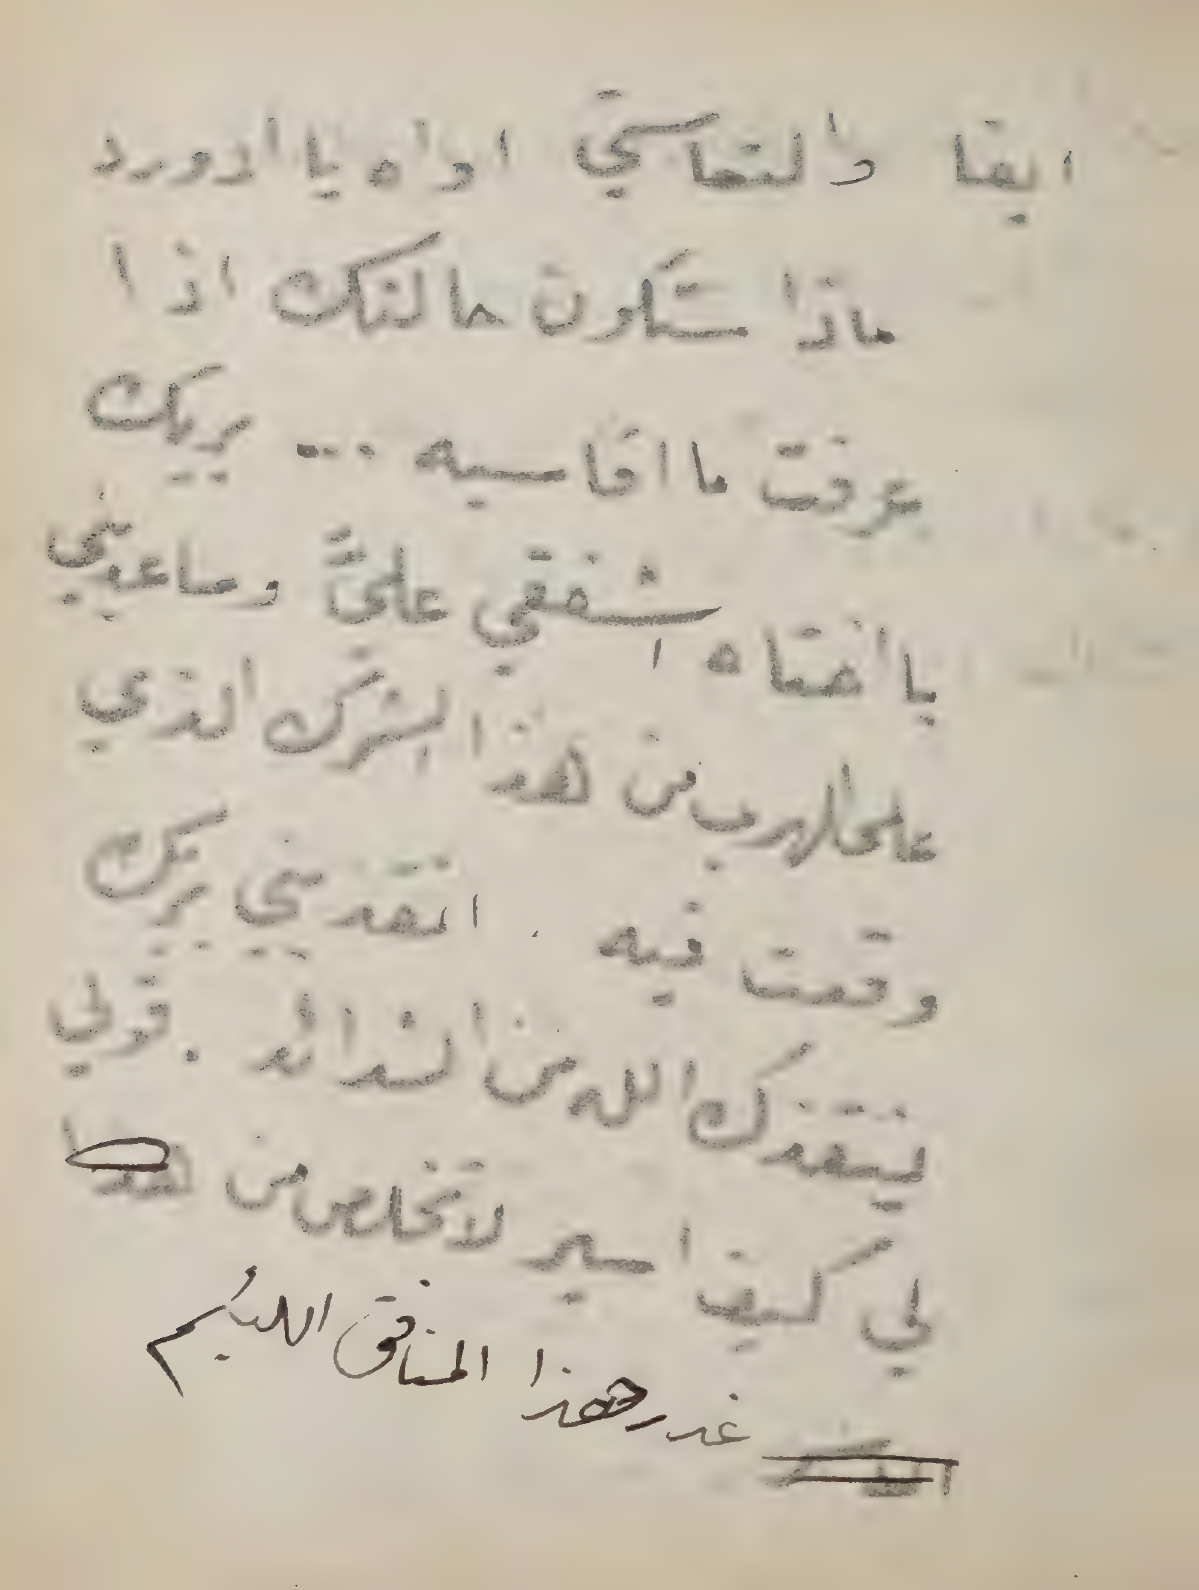 ايضا والتعاستي اواه يا ادورد
ماذا ستكون حالتك اذا
عرفت ما اقاسيه ... بربك
يا اختاه اشفقي عليَّ وساعديني
على الهرب من هذا الشرك الذي
وقعت فيه . انقذيني بربك
لينقذك الله من الشدائد . قولي
لي كيف اسير لاتخلص من هذا
غدر هذا المنافق اللئيم